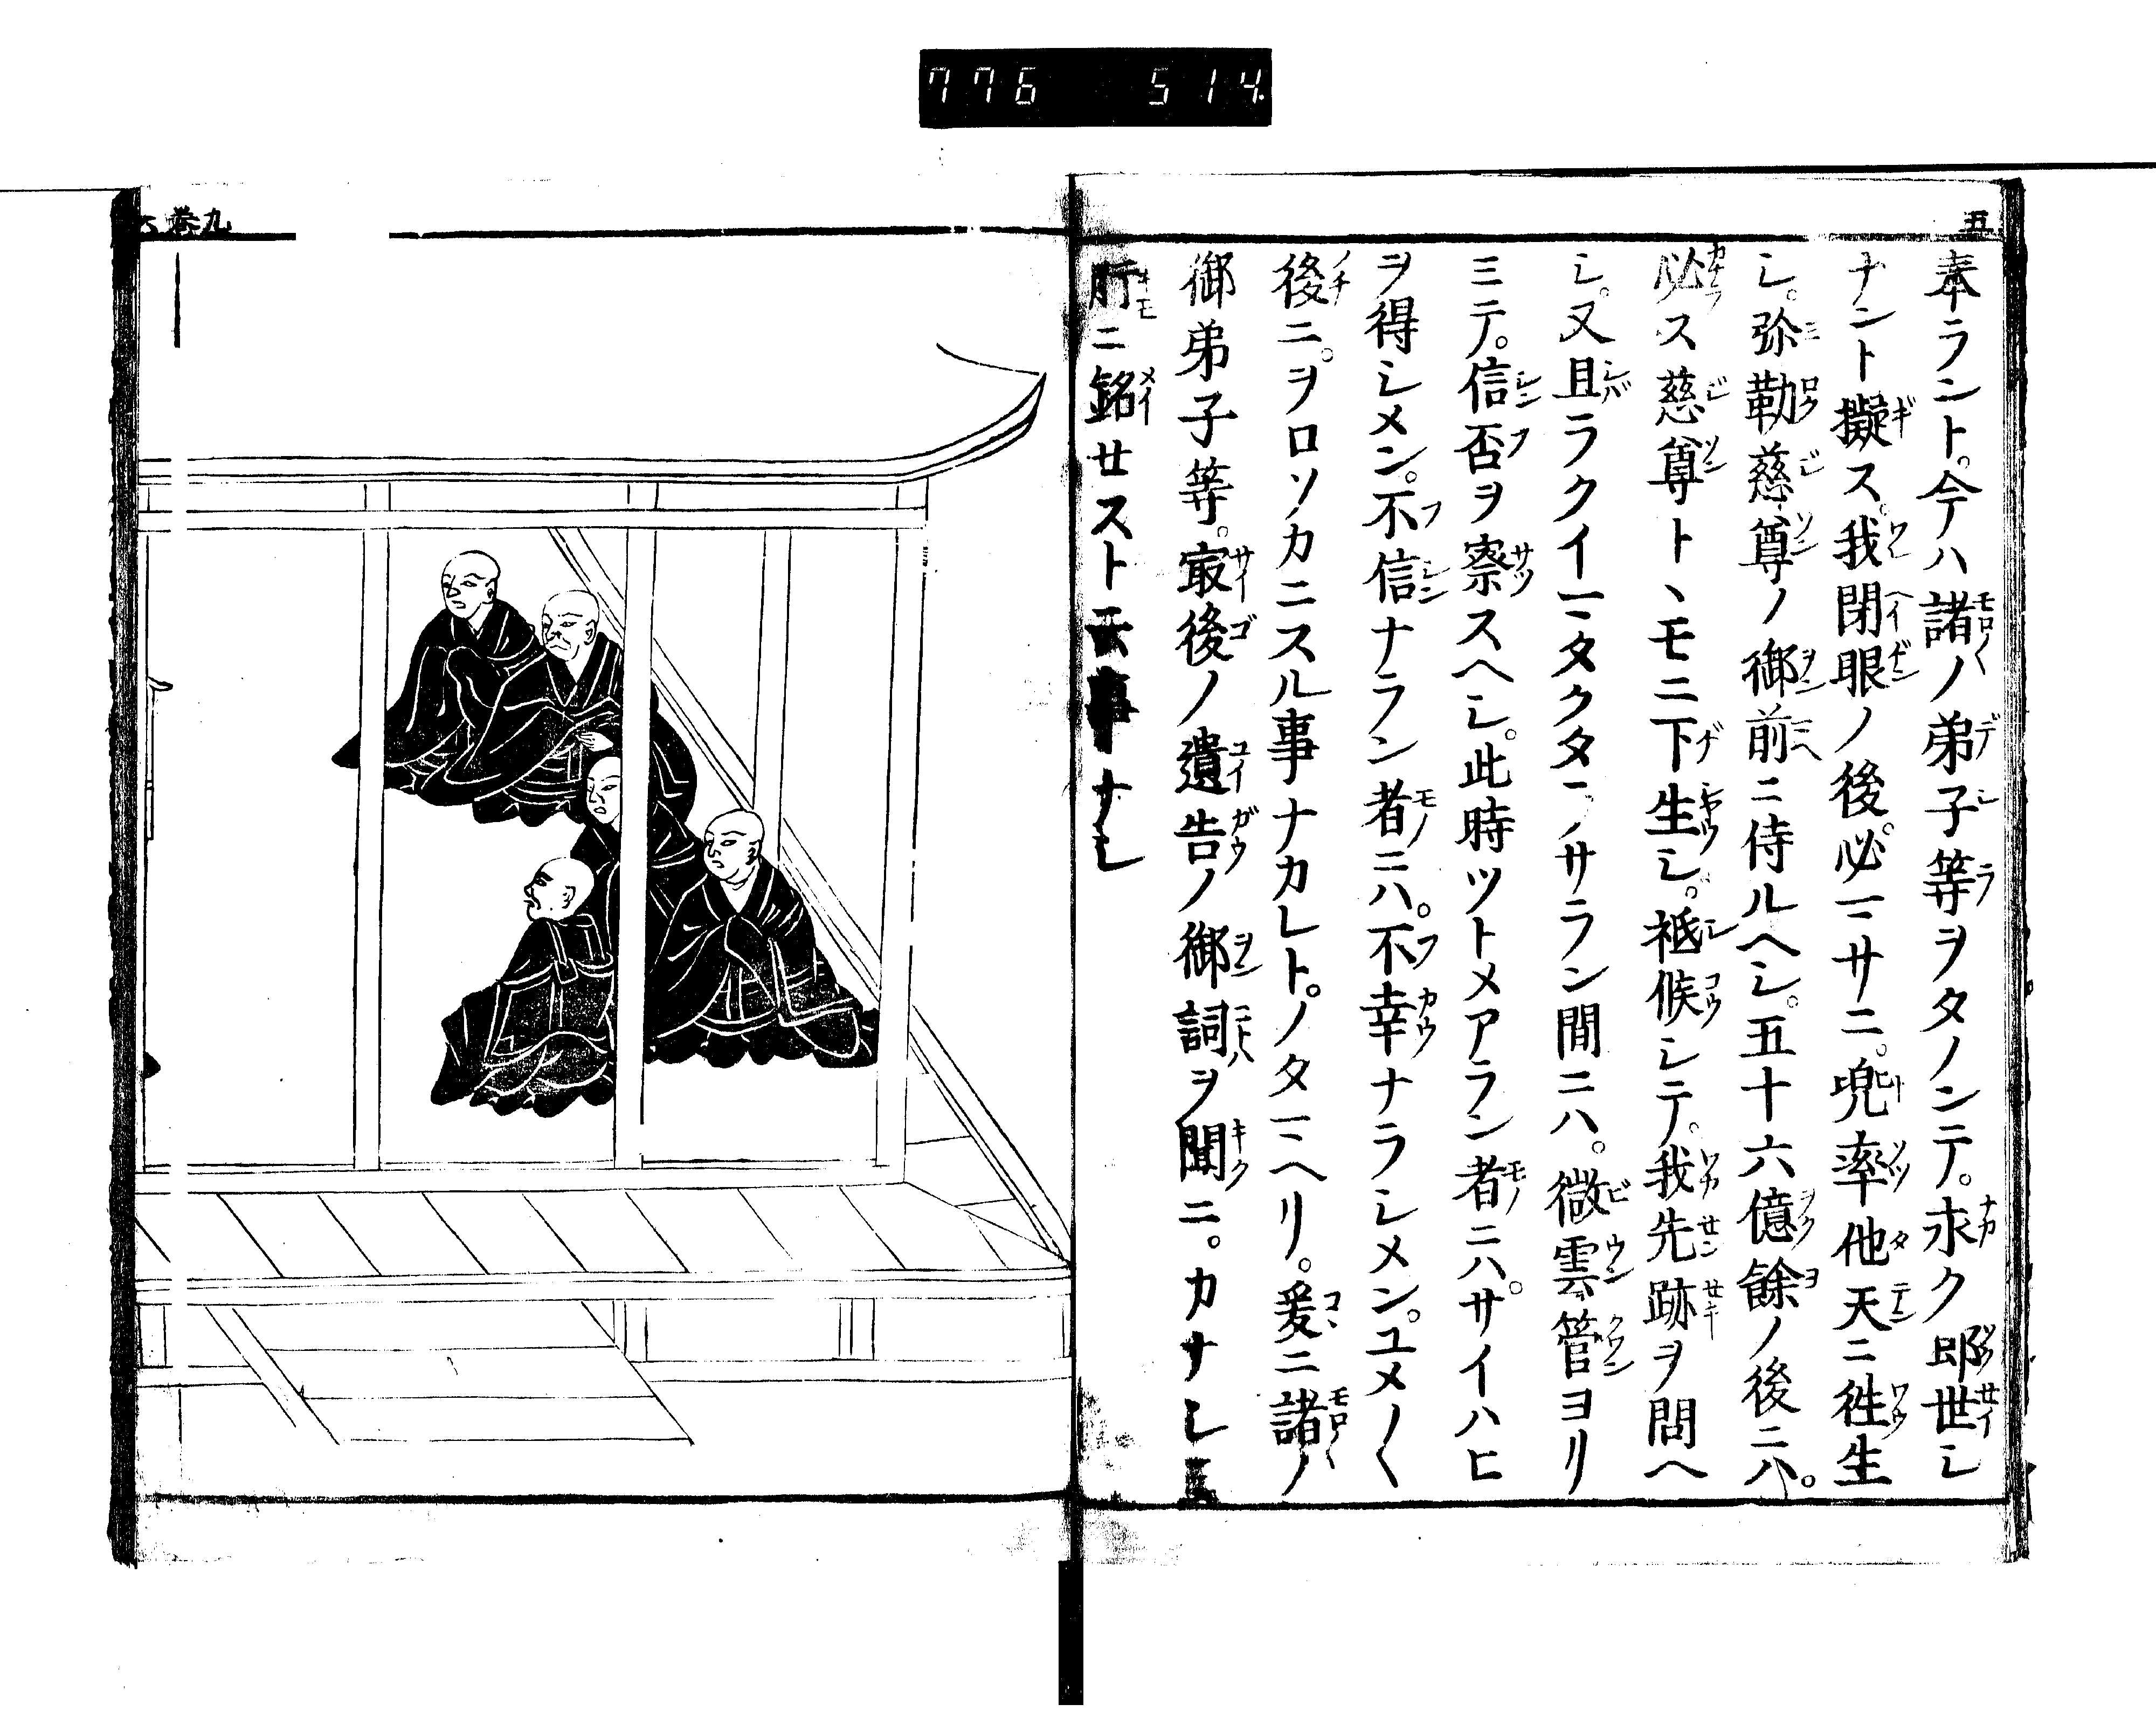 776 514.
五
奉ラント。今ハ諸ノ弟子等ヲタノンテ。永ク即世シ
ナント擬ス。我閉眼ノ後。必マサニ。兜率他天ニ徃生
シ。弥勒慈尊ノ御前ニ侍ルヘシ。五十六億餘ノ後ニハ。
必ス慈尊トヽモニ下生シ。祗候シテ。我先跡ヲ問ヘ
シ。又且ラクイマタクタラサラン間ニハ。微雲管ヨリ
ミテ。信否ヲ察スヘシ。此時ツトメアラン者ニハ。サイハヒ
ヲ得シメン。不信ナラン者ニハ。不幸ナラシメン。ユメ〱
後ニ。ヲロソカニスル事ナカレト。ノタマヘリ。爰ニ諸ノ
御弟子等。㝡後ノ遺告ノ御詞ヲ聞ニ。カナシミ
肝ニ銘セスト云事ナシ
九巻
六